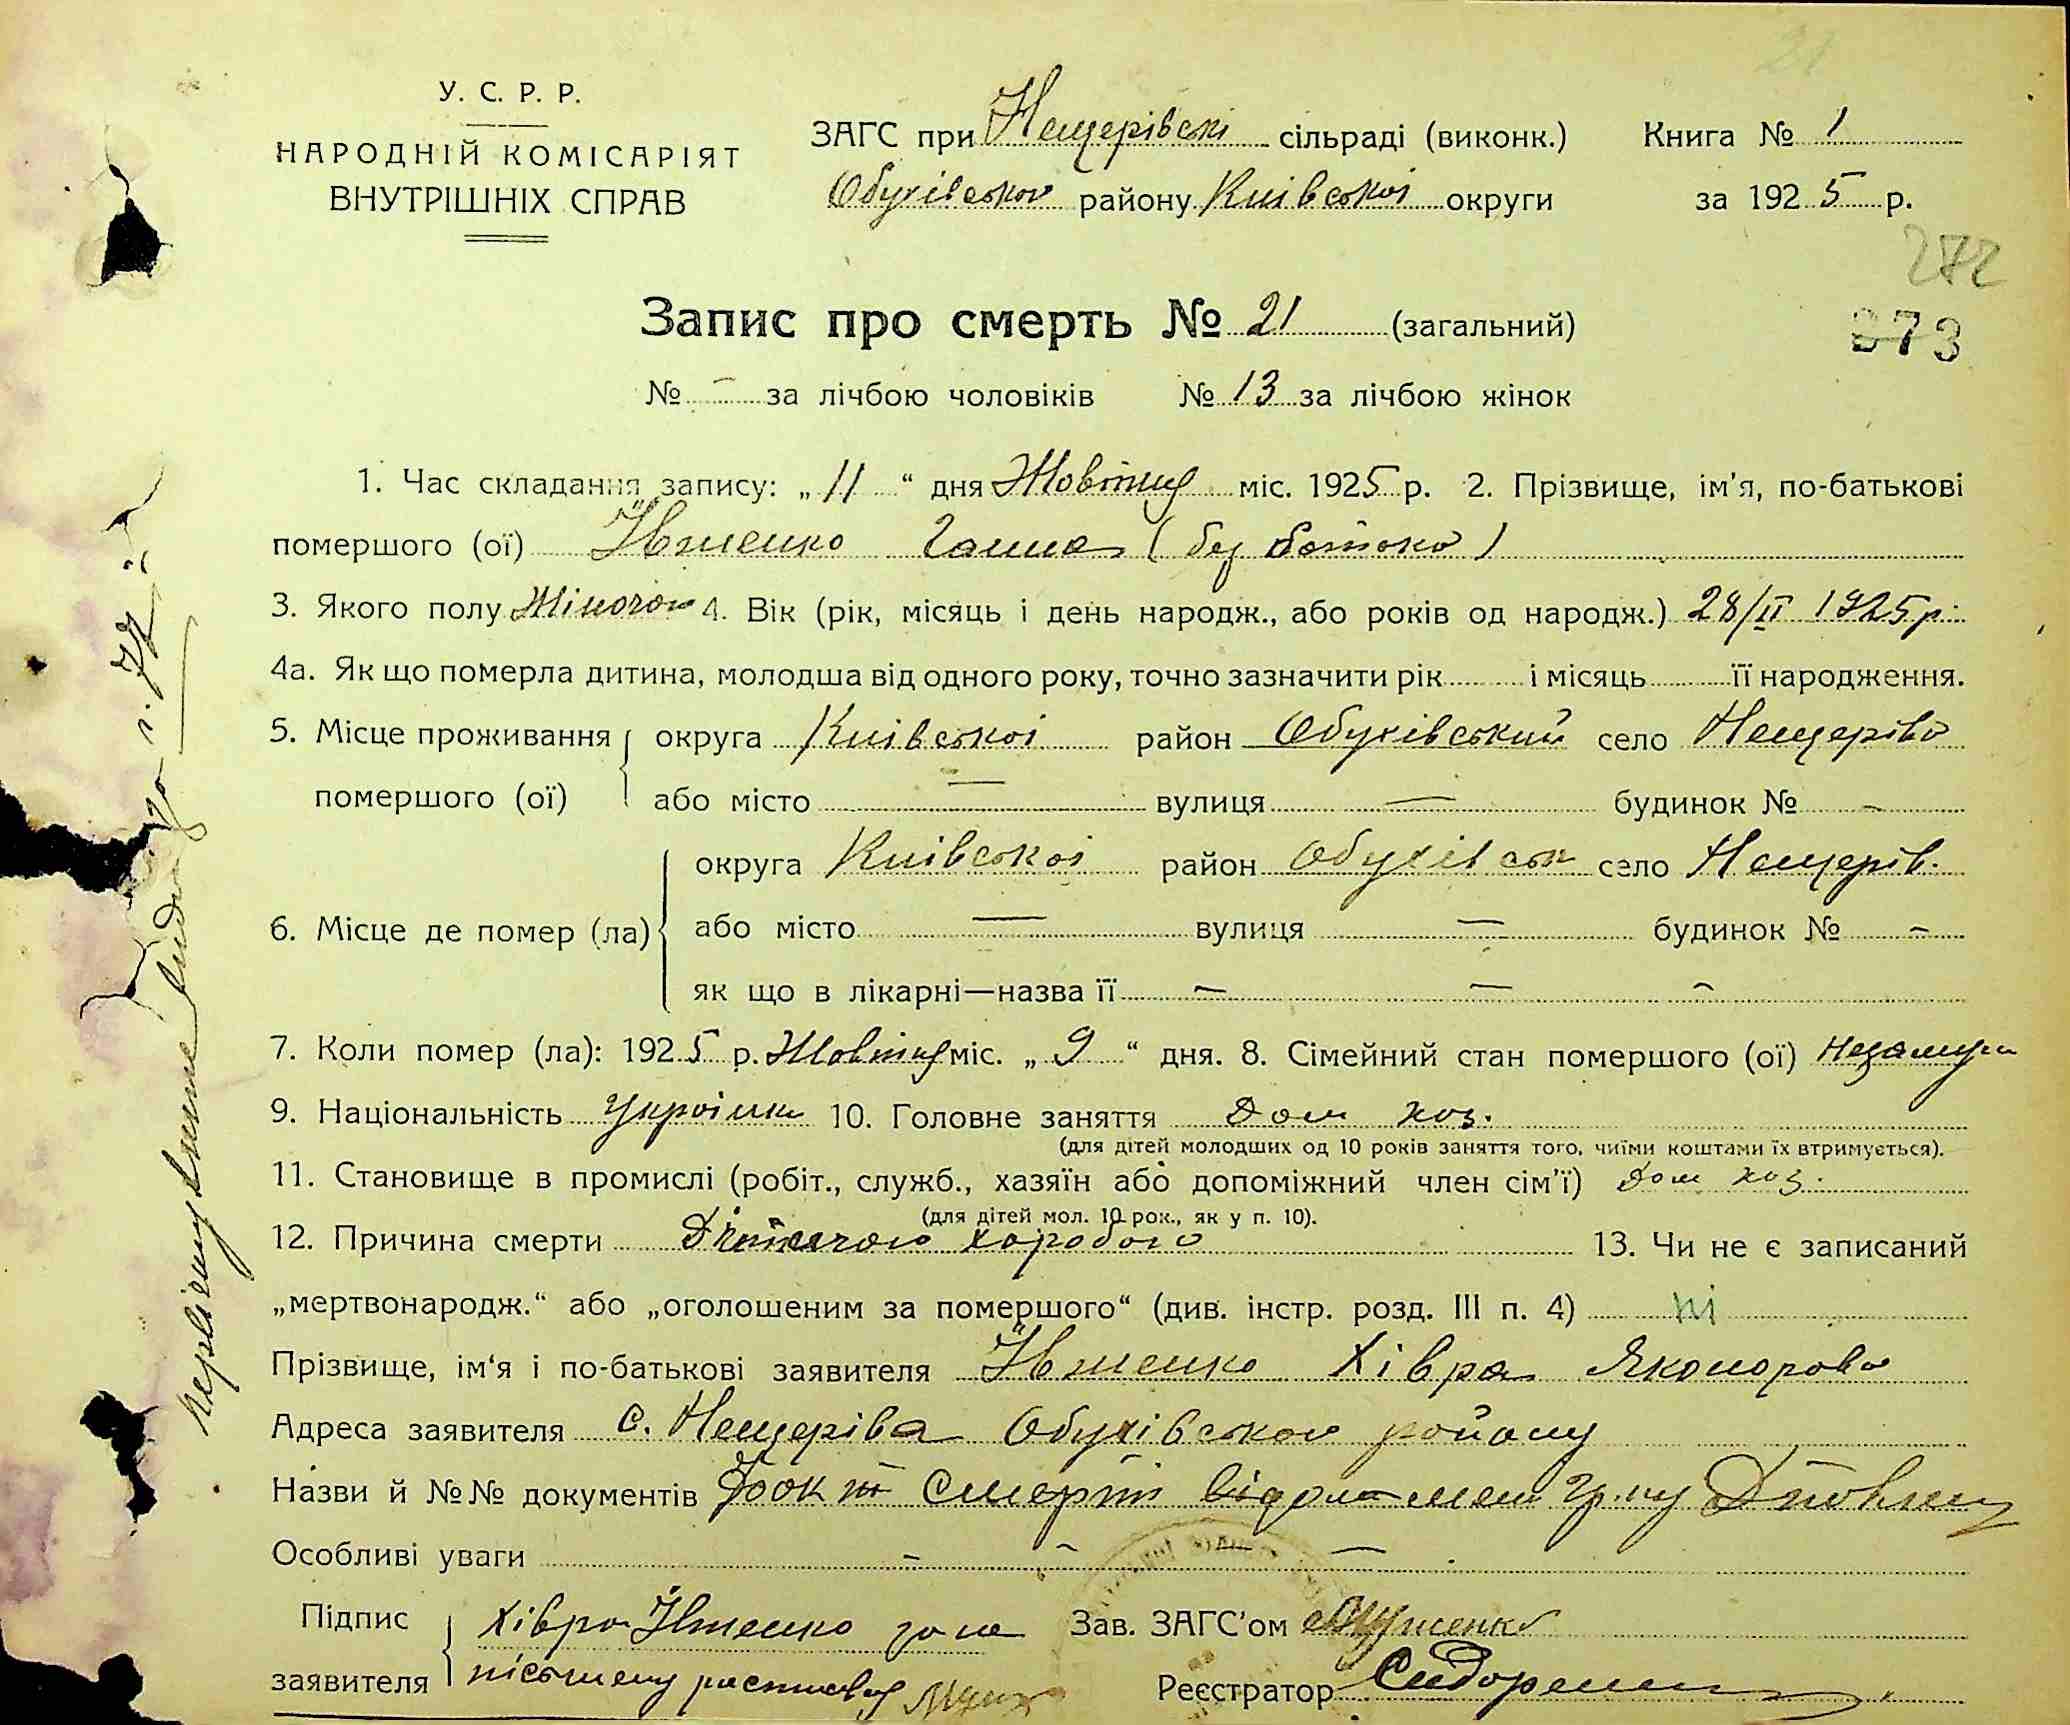 21
У. С. Р. Р.
НАРОДНІЙ КОМІСАРІЯТ
ВНУТРІШНІХ СПРАВ
ЗАГС при Нещерівскі сільраді (виконк.) Книга № 1
Обухівського району Київської округи за 1925 р.
272
373
Запис про смерть № 21 (загальний)
№ — за лічбою чоловіків № 13 за лічбою жінок
1. Час складання запису: „11“ дня Жовтня міс. 1925 р. 2. Прізвище, ім'я, по-батькові
помершого (ої) Ївженко Ганна (без батька)
3. Якого полу Жіночого 4. Вік (рік, місяць і день народж., або років од народж.) 28/II 1925 р.
4а. Як що померла дитина, молодша від одного року, точно зазначити рік і місяць її народження.
5. Місце проживання помершого (ої) округа Київської район Обухівський село Нещерів
або місто — вулиця — будинок № -
6. Місце де помер (ла) округа Київської район Обухівськ село Нещерів.
або місто — вулиця — будинок № -
як що в лікарні—назва її — — -
7. Коли помер (ла): 1925 р. Жовтня міс. „9“ дня. 8. Сімейний стан помершого (ої) незамужн
9. Національність Україінк 10. Головне заняття Дом хоз.
(для дітей молодших од 10 років заняття того, чиїми коштами їх втримується).
11. Становище в промислі (робіт., служб., хазяїн або допоміжний член сім'ї) Дом хоз.
(для дітей мол. 10 рок., як у п. 10).
12. Причина смерти Дітячою хоробою 13. Чи не є записаний
„мертвонародж.“ або „оголошеним за помершого“ (див. інстр. розд. III п. 4) ні
Прізвище, ім'я і по-батькові заявителя Ївженко Хівра
Адреса заявителя с. Нещеріва Обухівського району
Назви й №№ документів Факт смерті
Особливі уваги - - — —
Підпис заявителя Хівра Ївженко за не
письмену росписався
Зав. ЗАГС'ом
Реєстратор Сидоренко